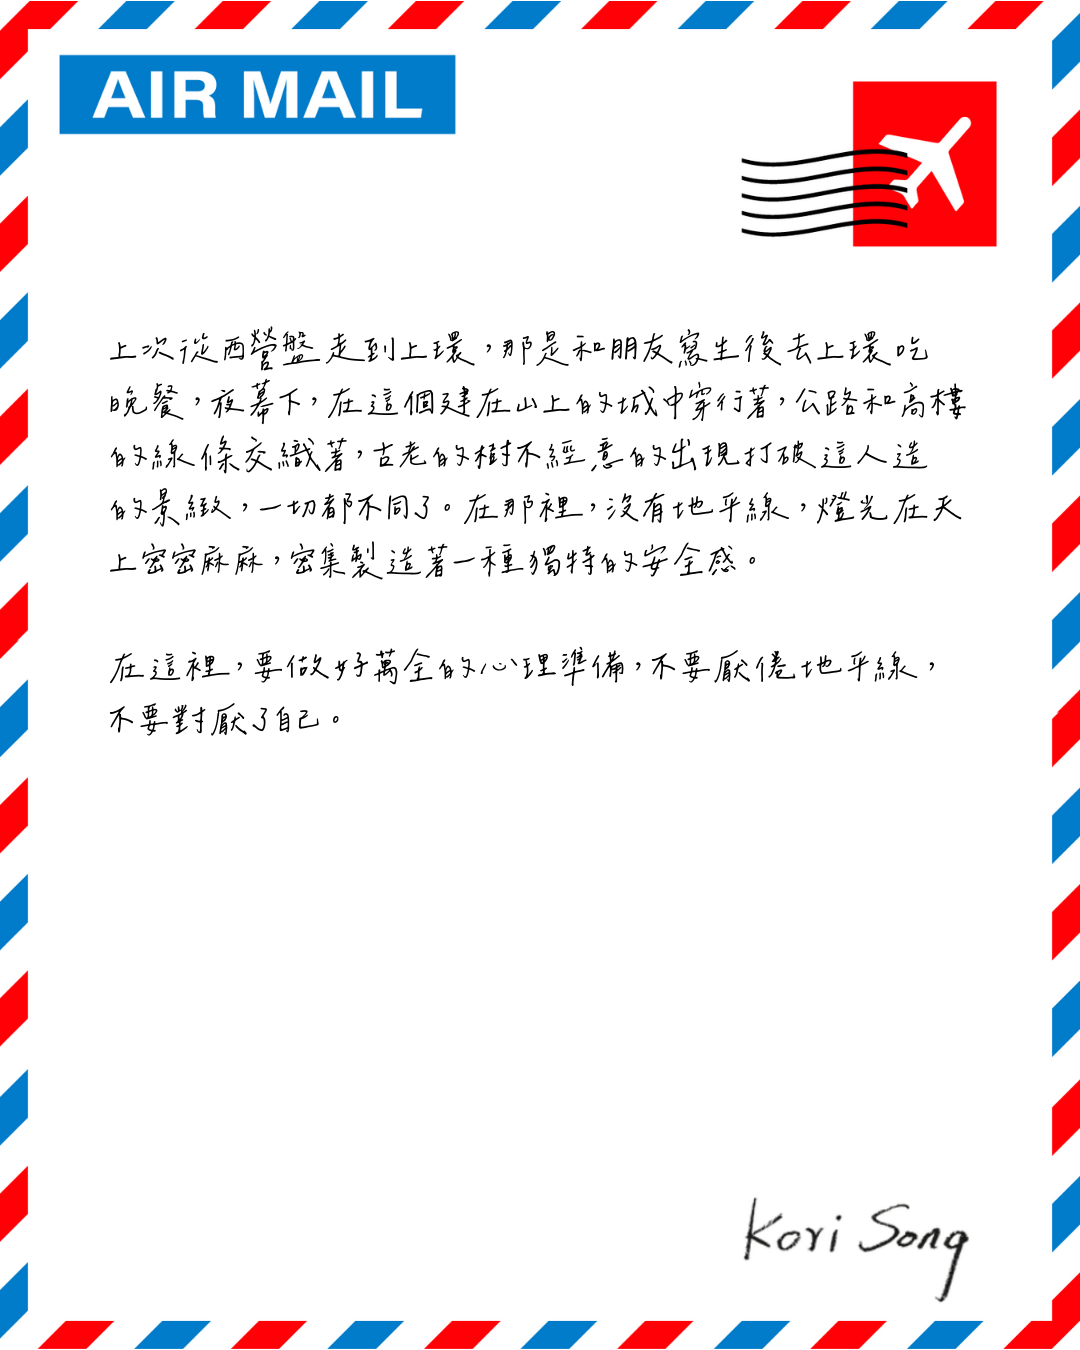 AIR MAIL
上次從西營盤走到上環，那是和朋友寫生後去上環吃
晚餐，夜幕下，在這個建在山上的城中穿行著，公路和高樓
的線條交織著，古老的樹不經意的出現打破這人造
的景緻，一切都不同了。在那裡，沒有地平線，燈光在天
上密密麻麻，密集製造著一種獨特的安全感。
在這裡，要做好萬全的心理準備，不要厭倦地平線，
不要對厭了自己。
Kori Song